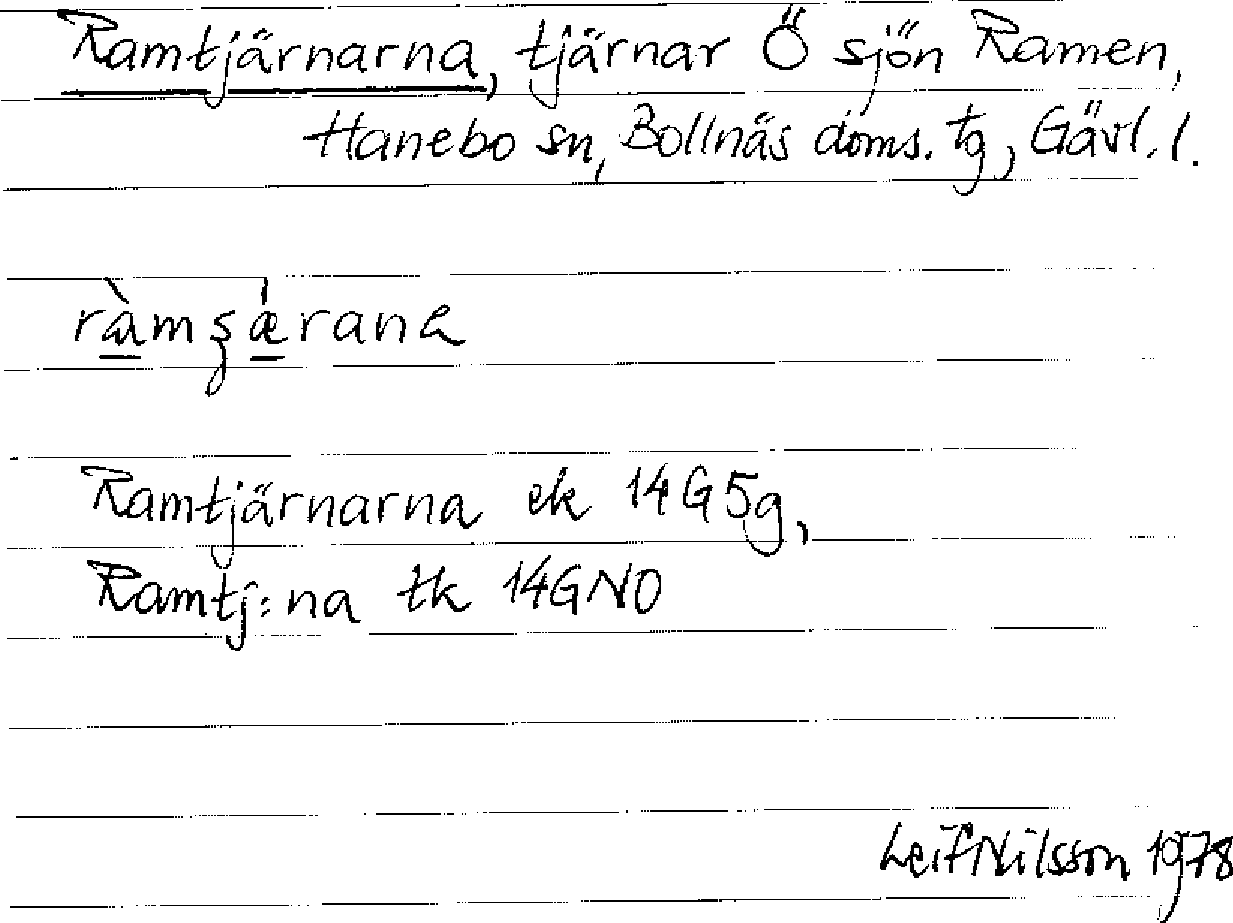 Ramtjärnarna, tjärnar Ö sjön Ramen,
Hanebo sn, Bollnäs doms. tg, Gävl. l.
ràmʂǽrana
Ramtjärnarna ek 14G5g,
Ramtj:na tk 14GNO
Leif Nilsson 1978